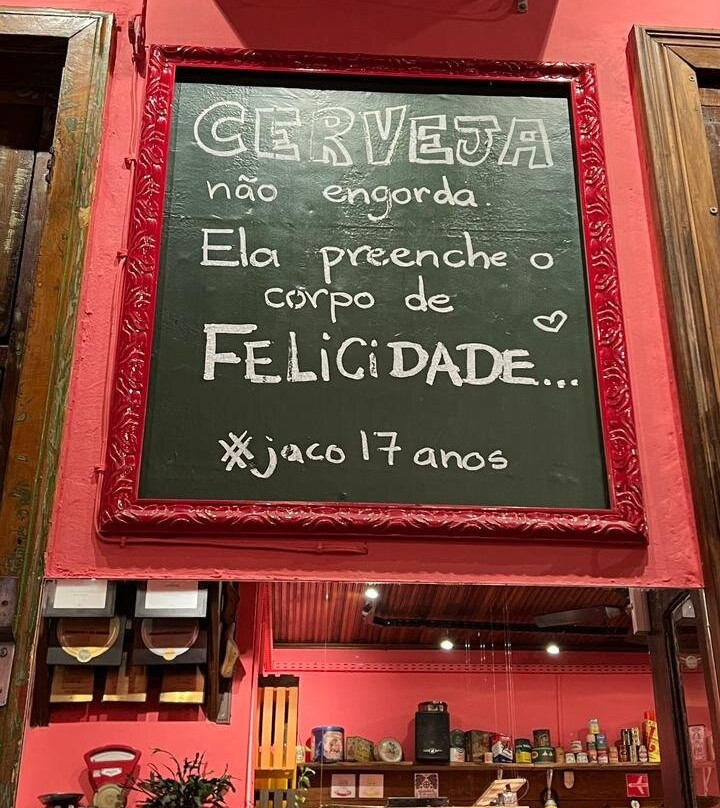 CERVEJA
não engorda.
Ela preenche o
corpo de
FELiCiDADE...
#jaco 17 anos